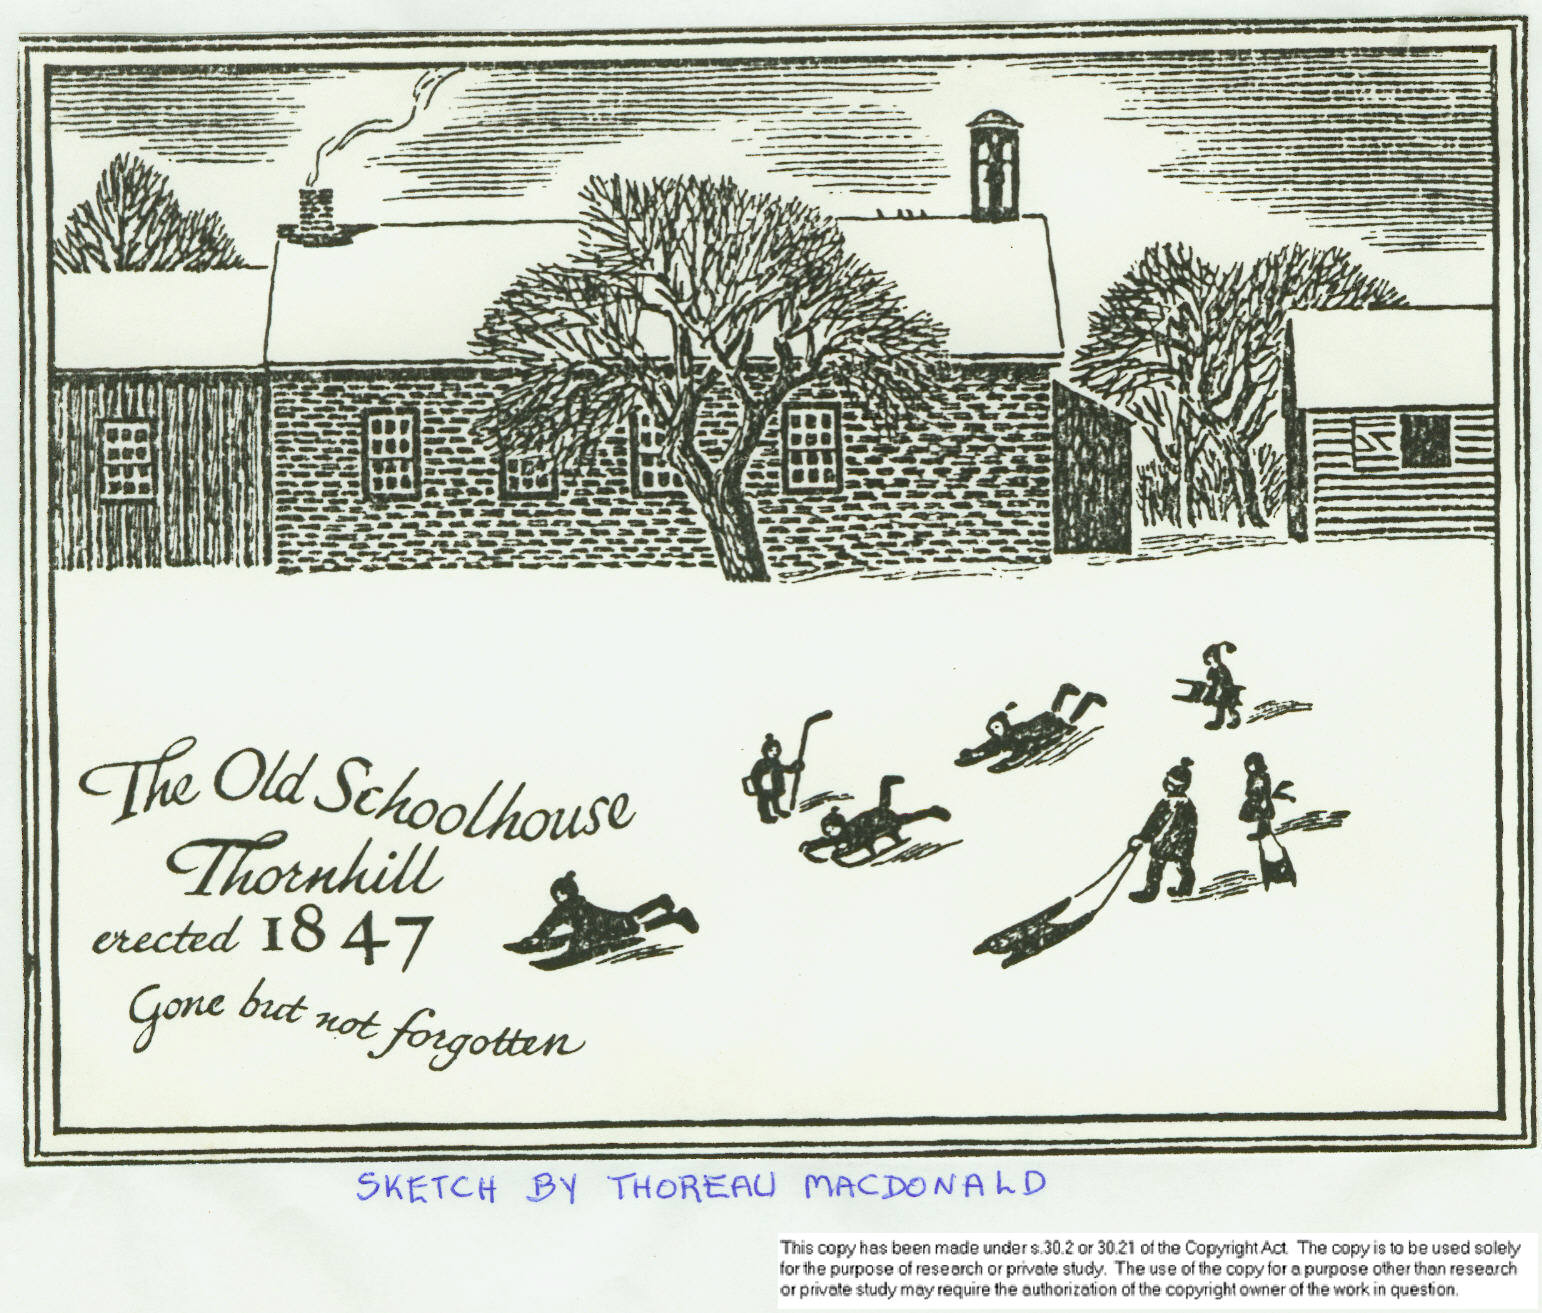 The Old Schoolhouse
Thornhill
erected 1847
Gone but not forgotten
SKETCH BY THOREAU MACDONALD
This copy has been made under s.30.2 or 30.21 of the Copyright Act. The copy is to be used solely
for the purpose of research or private study. The use of the copy for a purpose other than research
or private study may require the authorization of the copyright owner of the work in question.